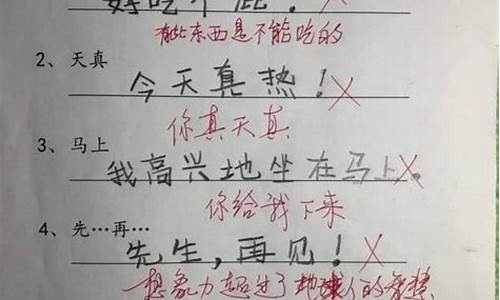 好吃个屁！
有些东西是不能吃的
2、天真
今天真热！
你真天真
3、马上
我高兴地坐在马上。
你给我下来
4、先…再…
先生，再见！
想象力超过了地球人的